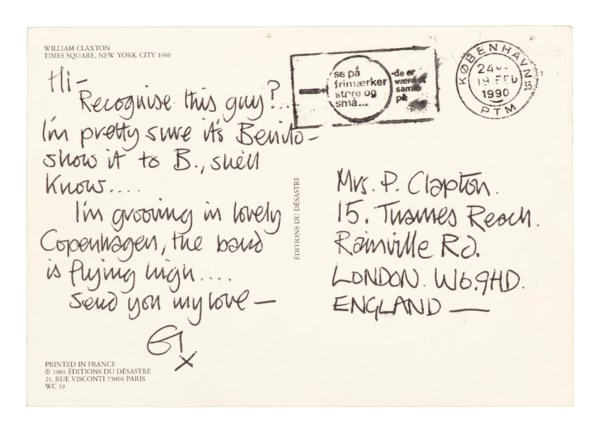 WILLIAM CLAXTON
TIMES SQUARE, NEW YORK CITY 1960
Hi-
Recognise this guy?...
I'm pretty sure it's Benito-
show it to B., she'll
know....
I'm grooving in lovely
Copenhagen, the band
is flying high....
Send you my love —
x
PRINTED IN FRANCE
© 1989 ÉDITIONS DU DÉSASTRE
21, RUE VISCONTI 75006 PARIS
WC 19
ÉDITIONS DU DÉSASTRE
se på
frimærker
større og
små...
-de er
værd
samle
på
KØBENHAVN
35
19 FEB
1990
PTM
Mrs. P. Clapton.
15. Thames Reach.
Rainville Rd.
LONDON. W6.9HD.
ENGLAND —